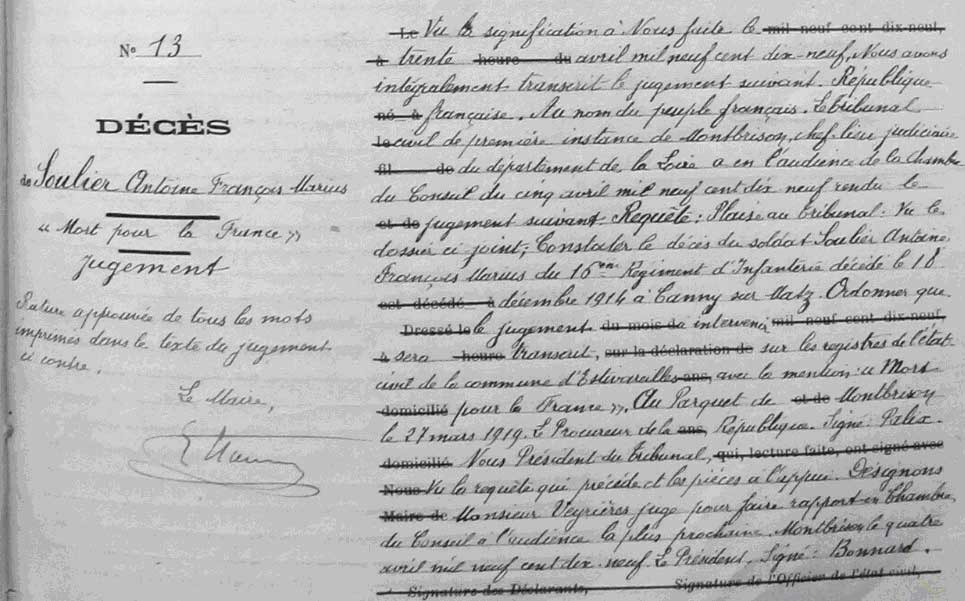 N° 13
DÉCÈS
de Soulier Antoine François Marius
« Mort pour la France »
Jugement
Rature approuvée de tous les mots
imprimés dans le texte du jugement
ci contre.
Le Maire,
Le Vu la signification à Nous faite le mil neuf cent dix-neuf,
à trente heure du avril mil neuf cent dix neuf, Nous avons
intégralement transcrit le jugement suivant. République
né à française. Au nom du peuple français. Le tribunal
le civil de première instance de Montbrison, chef-lieu judiciaire
fil de du département de la Loire a en l'audience de la chambre
du Conseil du cinq avril mil neuf cent dix neuf rendu le
et de jugement suivant Requête : Plaise au tribunal. Vu le
dossier ci joint ; Constater le décès du soldat Soulier Antoine
François Marius du 16ème Régiment d'Infanterie décédé le 18
est décédé à décembre 1914 à Canny sur Matz. Ordonner que
Dressé le le jugement du mois da intervenir mil neuf cent dix-neuf,
à sera heure transcrit, sur la déclaration de sur les registres de l'état
civil de la commune d'Estivareilles ans, avec la mention : « Mort
domicilié pour la France ». Au Parquet de et de Montbrison
le 27 mars 1919. Le Procureur de la ans, République. Signé : Palix.
domicilié Nous Président du Tribunal, qui, lecture faite, ont signé avec
Nous Vu la requête qui précède et les pièces à l'appui. Désignons
Maire de Monsieur Veyrières juge pour faire rapport en Chambre
du Conseil à l'audience la plus prochaine. Montbrison le quatre
avril mil neuf cent dix-neuf. Le Président. Signé : Bonnard.
Signature des Déclarants, Signature de l'Officier de l'état civil,